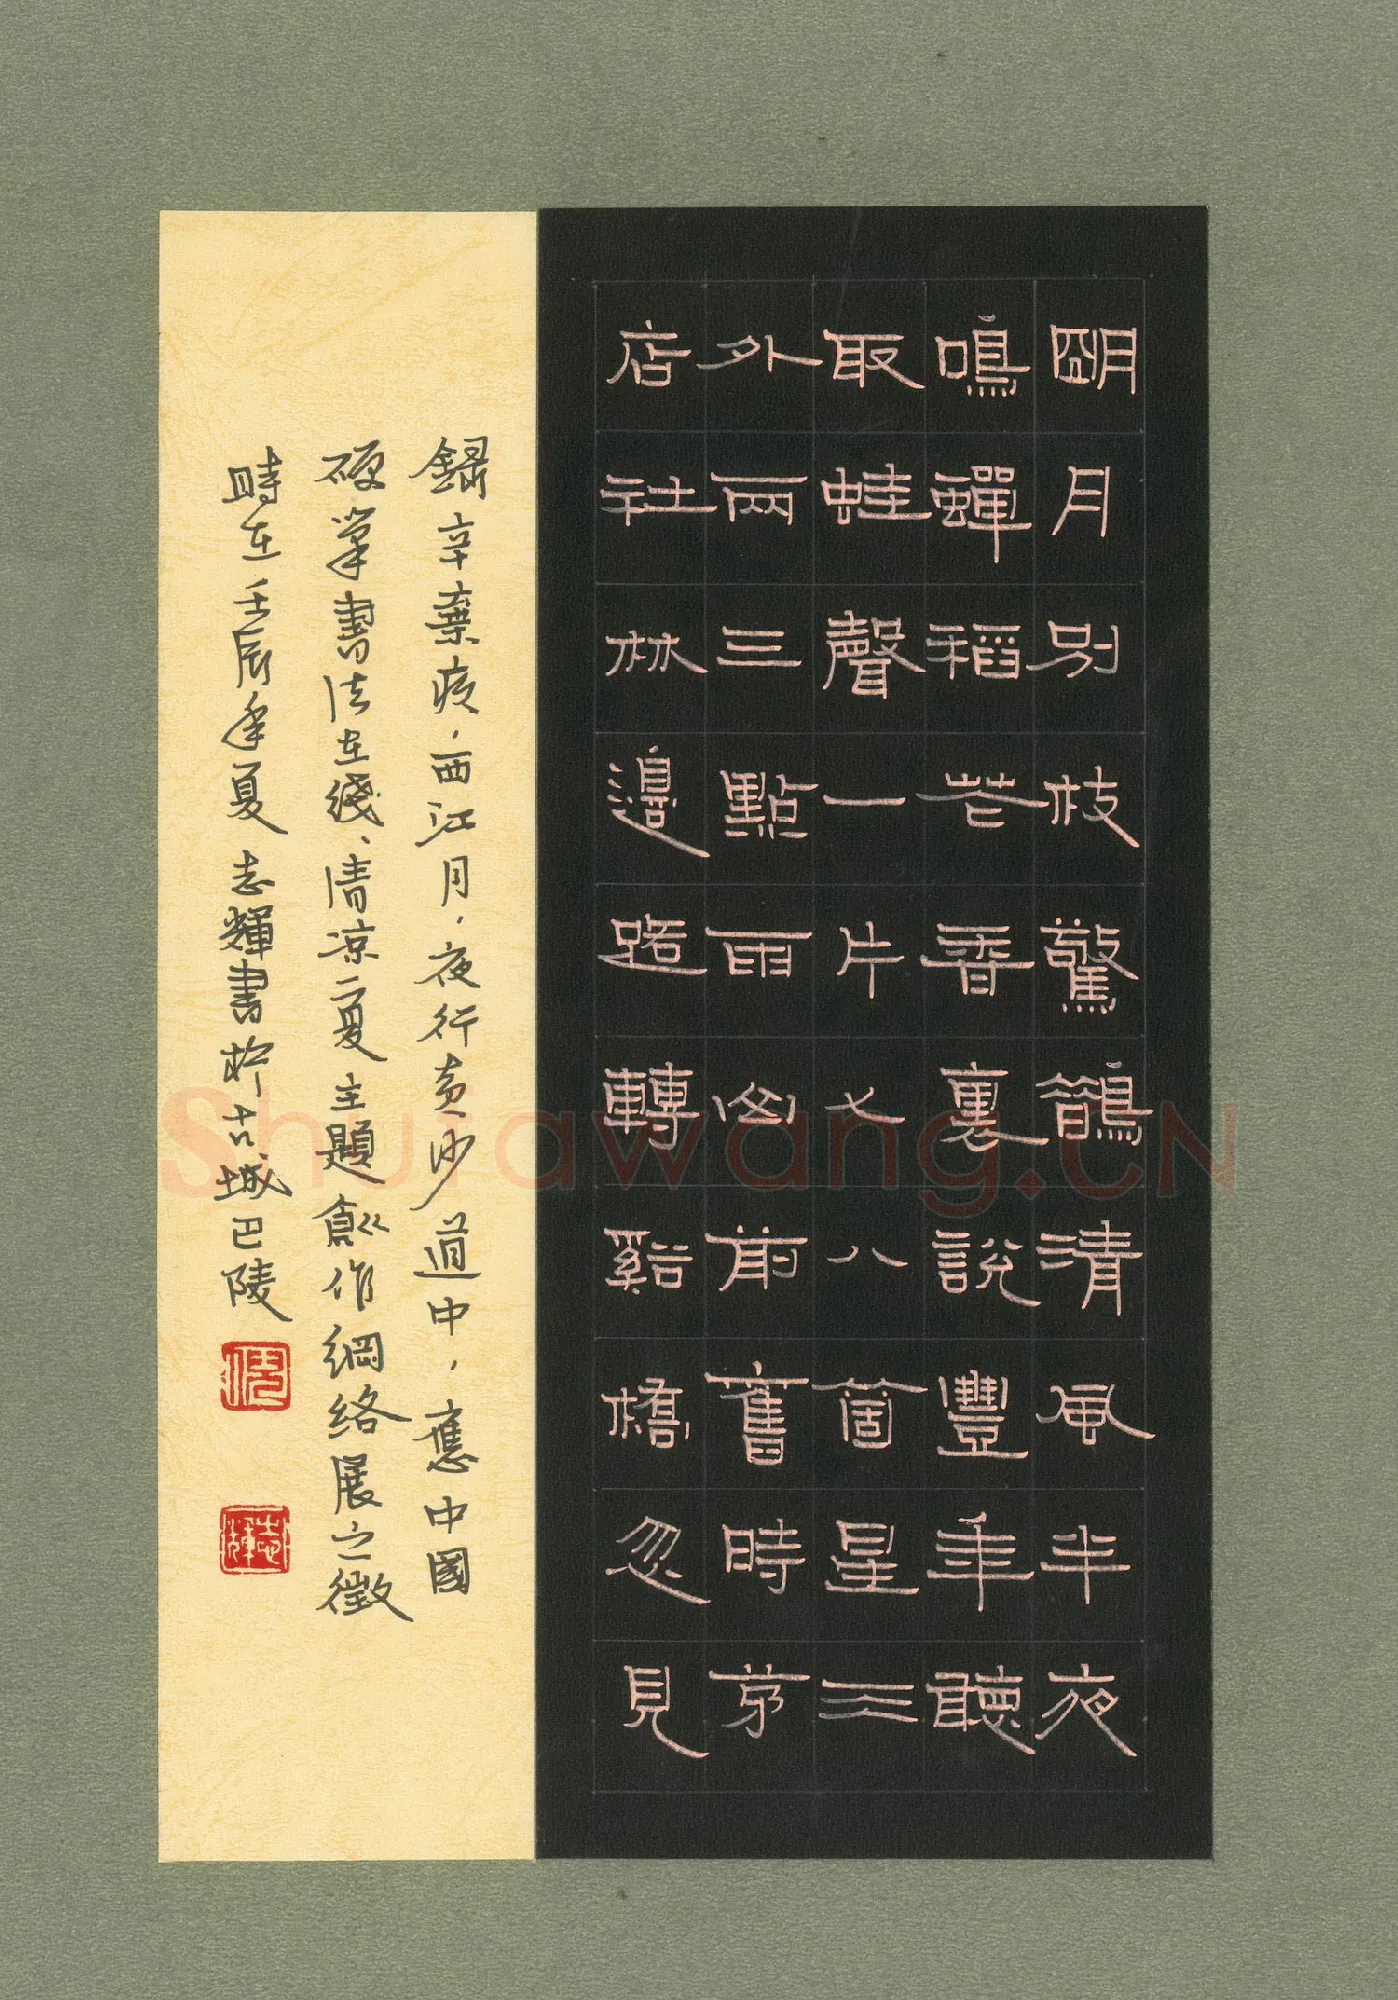 朙月別枝驚鵲清風半夜
鳴蟬稻花香裏說豐年聽
取蛙聲一片七八箇星天
外兩三點雨山前舊時茅
店社林邊路轉谿橋忽見
錄辛棄疾·西江月·夜行黃沙道中，應中國
硬筆書法在綫、清凉一夏主題創作網絡展之徵
時在壬辰年夏志輝書於古城巴陵
志輝
Shufawang.CN